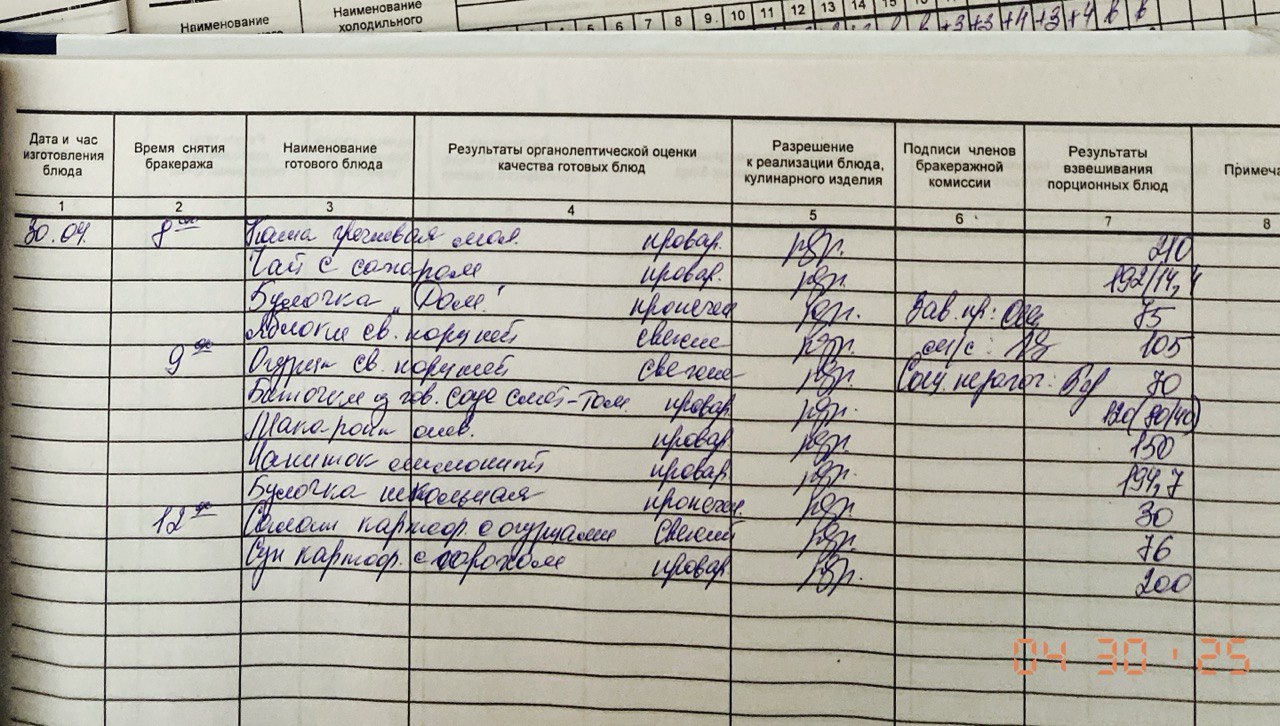 Наименование
Наименование холодильного
4 5 6 7 8 9 10 11 12 13 14 15
+3 +3 +4 +3 +4
Дата и час изготовления блюда
Время снятия бракеража
Наименование готового блюда
Результаты органолептической оценки качества готовых блюд
Разрешение к реализации блюда, кулинарного изделия
Подписи членов бракеражной комиссии
Результаты взвешивания порционных блюд
Примеча
1 2 3 4 5 6 7 8
30.04. 8 00 Каша гречневая мол. провар. рзр. 210
Чай с сахаром провар. рзр. 192/14,4
Булочка "Дом." пропечен рзр. Зав. пр: 75
Яблоки св. порцией свежие рзр. м/с: 105
9 00 Огурцы св. порцией свежие рзр. Соц. педагог: 70
Биточки из гов. соус смет-том. провар рзр. 120(80/40)
Макароны отв. провар рзр. 150
Напиток лимонный провар. рзр. 194,7
Булочка школьная пропечен рзр. 30
12 00 Салат картоф. с огурцами свежий рзр. 76
Суп картоф. с горохом провар рзр. 200
04 30 '25